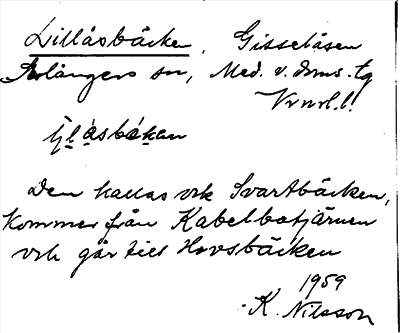 Lillåsbäcken, Gisselåsen
Alångers sn, Med. v. doms. tg
Vrnrl.l.
Den kallas ock Svartbäcken,
kommer från Kabelbotjärnen
och går till Havsbäcken
1959
K. Nilsson